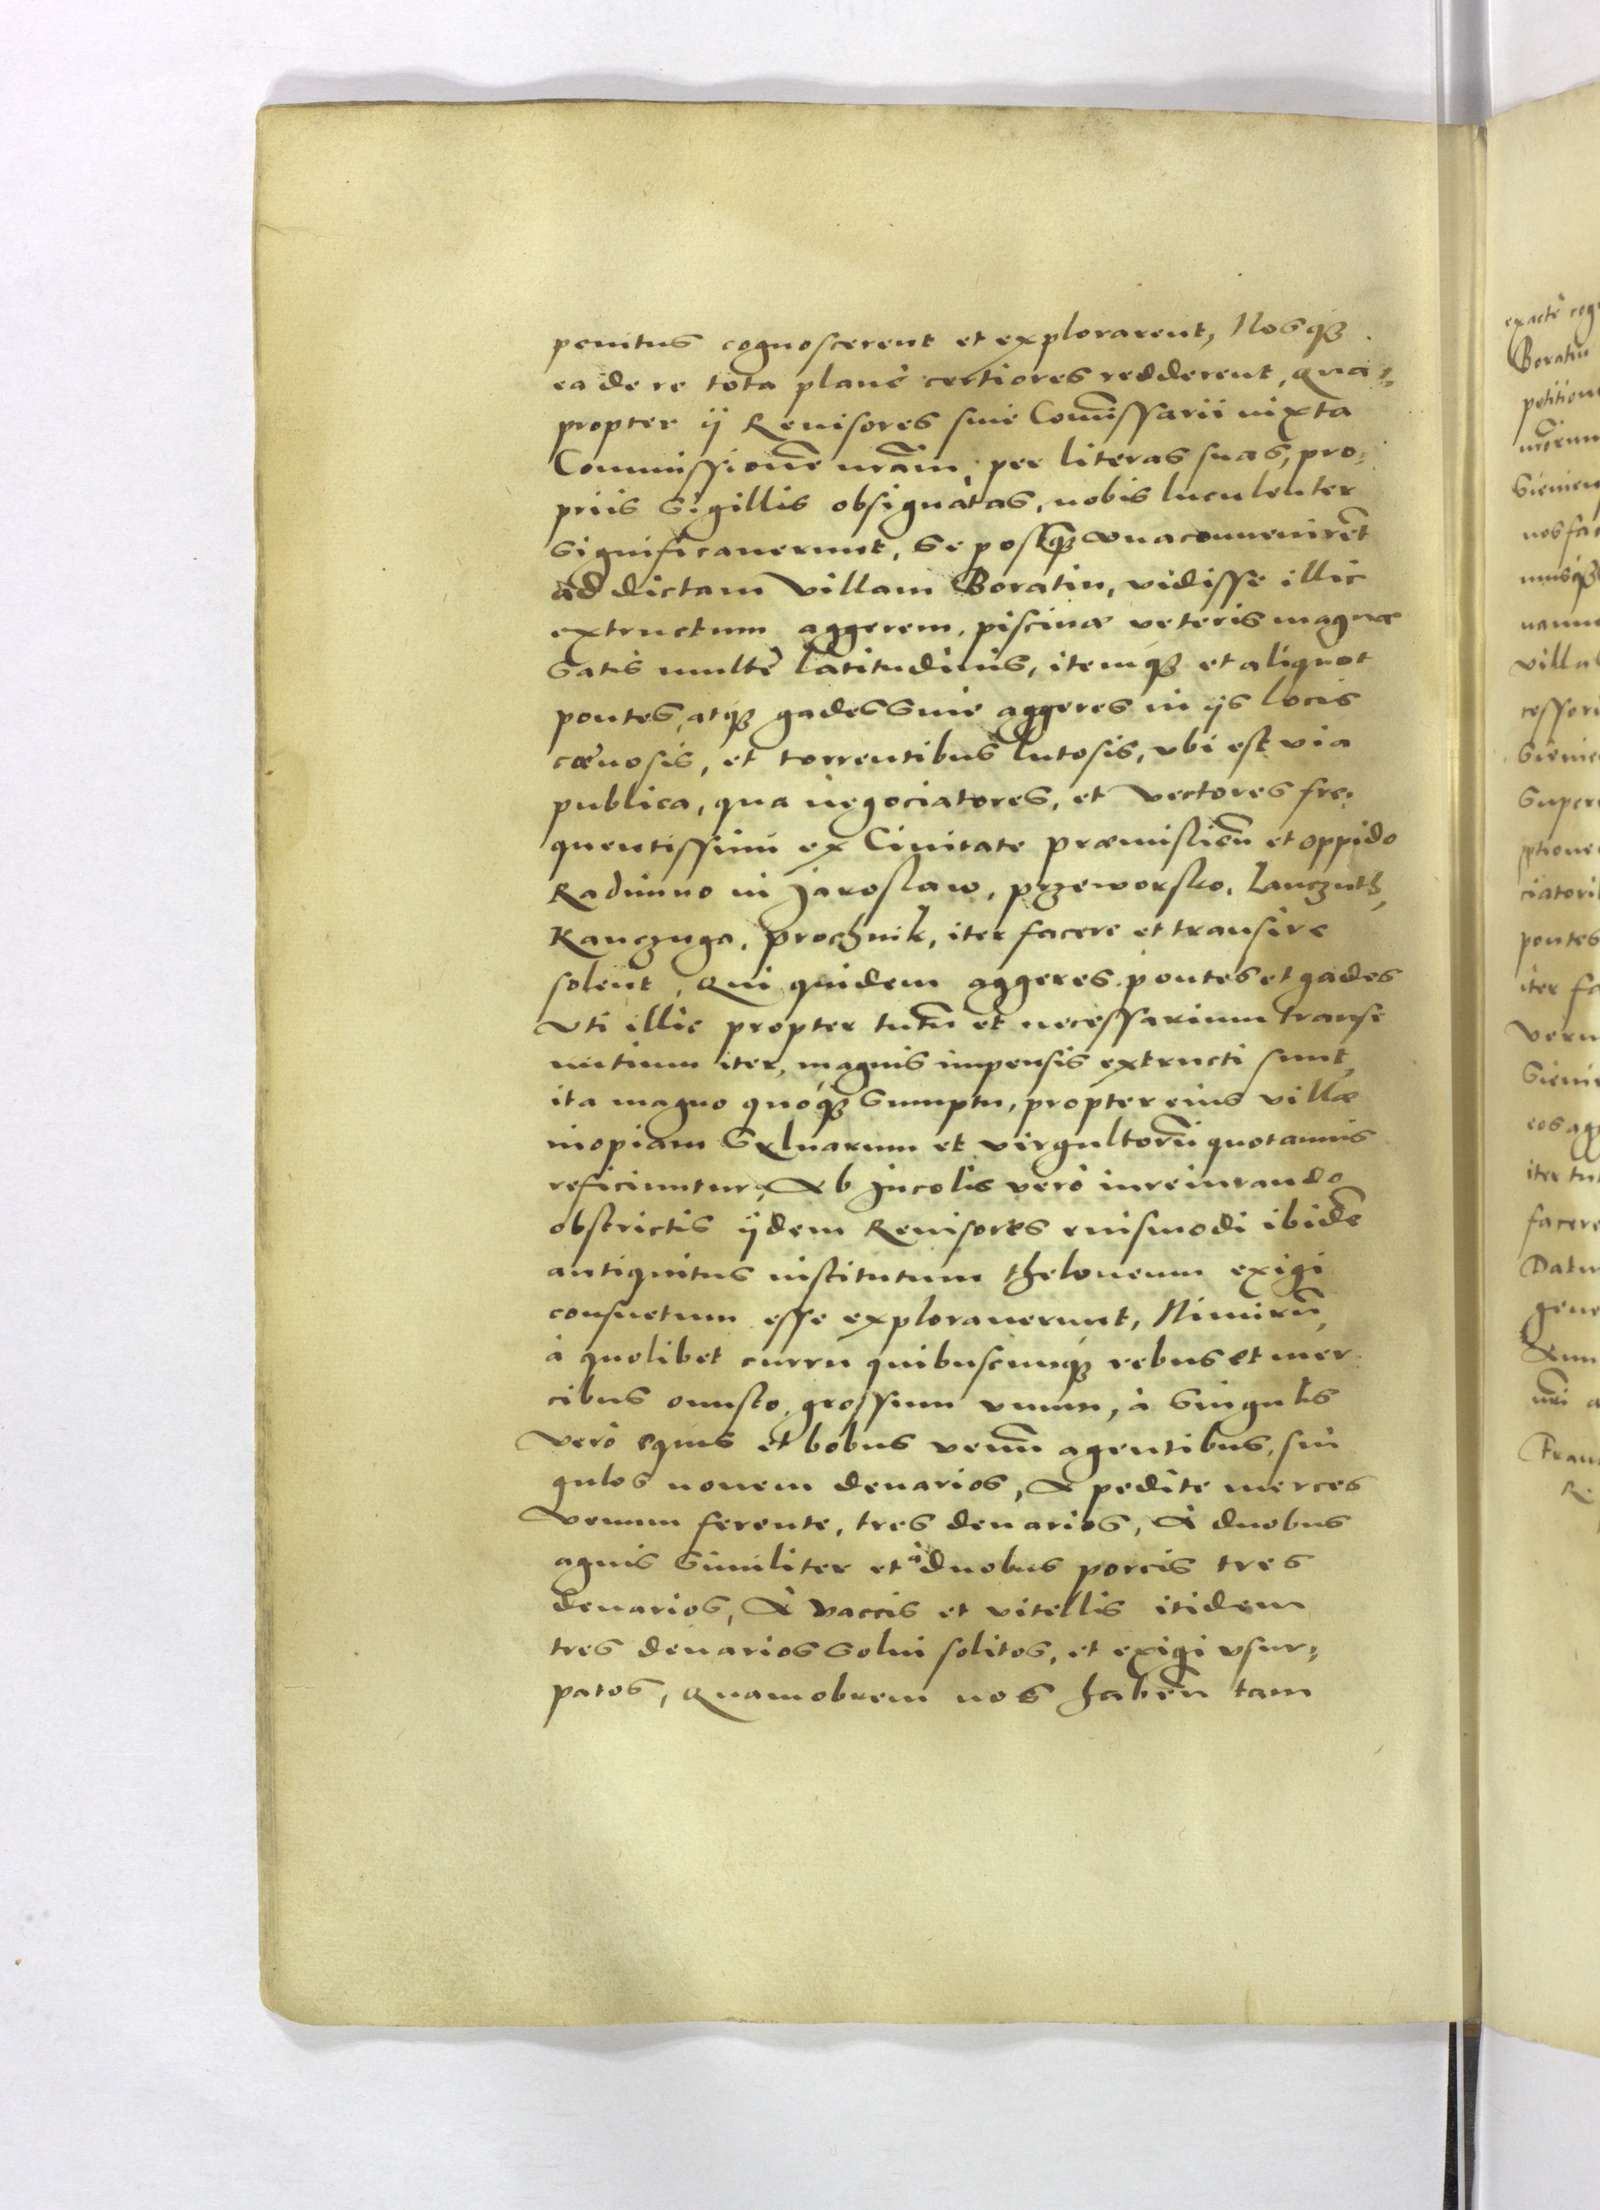 penitus cognoscerent et explorarent, Nosq3
ea de re tota planè certiores redderent, Qua=
propter ij Reuisores siue Com̃issarii iuxta
Commissionẽ nr̃am, per literas suas, pro=
priis sigillis obsignatas, nobis luculenter
significauerunt, se postq̃3 vna conuenirẽt
ad dictam villam Boratin, vidisse illic
extructum aggerem, piscinæ veteris magnæ
satis multè latitudinis, itemq3 et aliquot
pontes, atq3 gades siue aggeres in ijs locis
cœnosis, et torrentibus lutosis, vbi est via
publica, qua negociatores, et vectores fre=
quentissimi ex Ciuitate Præmislien̄ et oppido
Radimno in Jaroslaw, Przeworsko, Lanczuth,
Kanczuga, Prochnik, iter facere et transire
solent, Qui quidem aggeres pontes et gades
vti illic propter tutũ et necessarium transe
untium iter, magnis impensis extructi sunt,
ita magno quoq3 sumptu, propter eius villæ
inopiam syluarum et virgultorũ quotannis
reficiuntur, Ab Incolis verò iureiurando
obstrictis ijdem Reuisores eiusmodi ibidẽ
antiquitus institutum theloneum exigi
consuetum esse explorauerunt, Nimirũ,
à quolibet curru quibuscunq3 rebus et mer
cibus onusto, grossum vnum, à singulis
verò equis et bobus venũ agentibus, sin
gulos nouem denarios, A pedite merces
venum ferente, tres denarios, A duobus
agnis similiter et à duobus porcis tres
denarios, A vaccis et vitellis itidem
tres denarios solui solitos, et exigi vsur=
patos, Quamobrem nos haben̄ tam
exactè cog
Boratin
petition
nos fac
villa
iter fa
facere